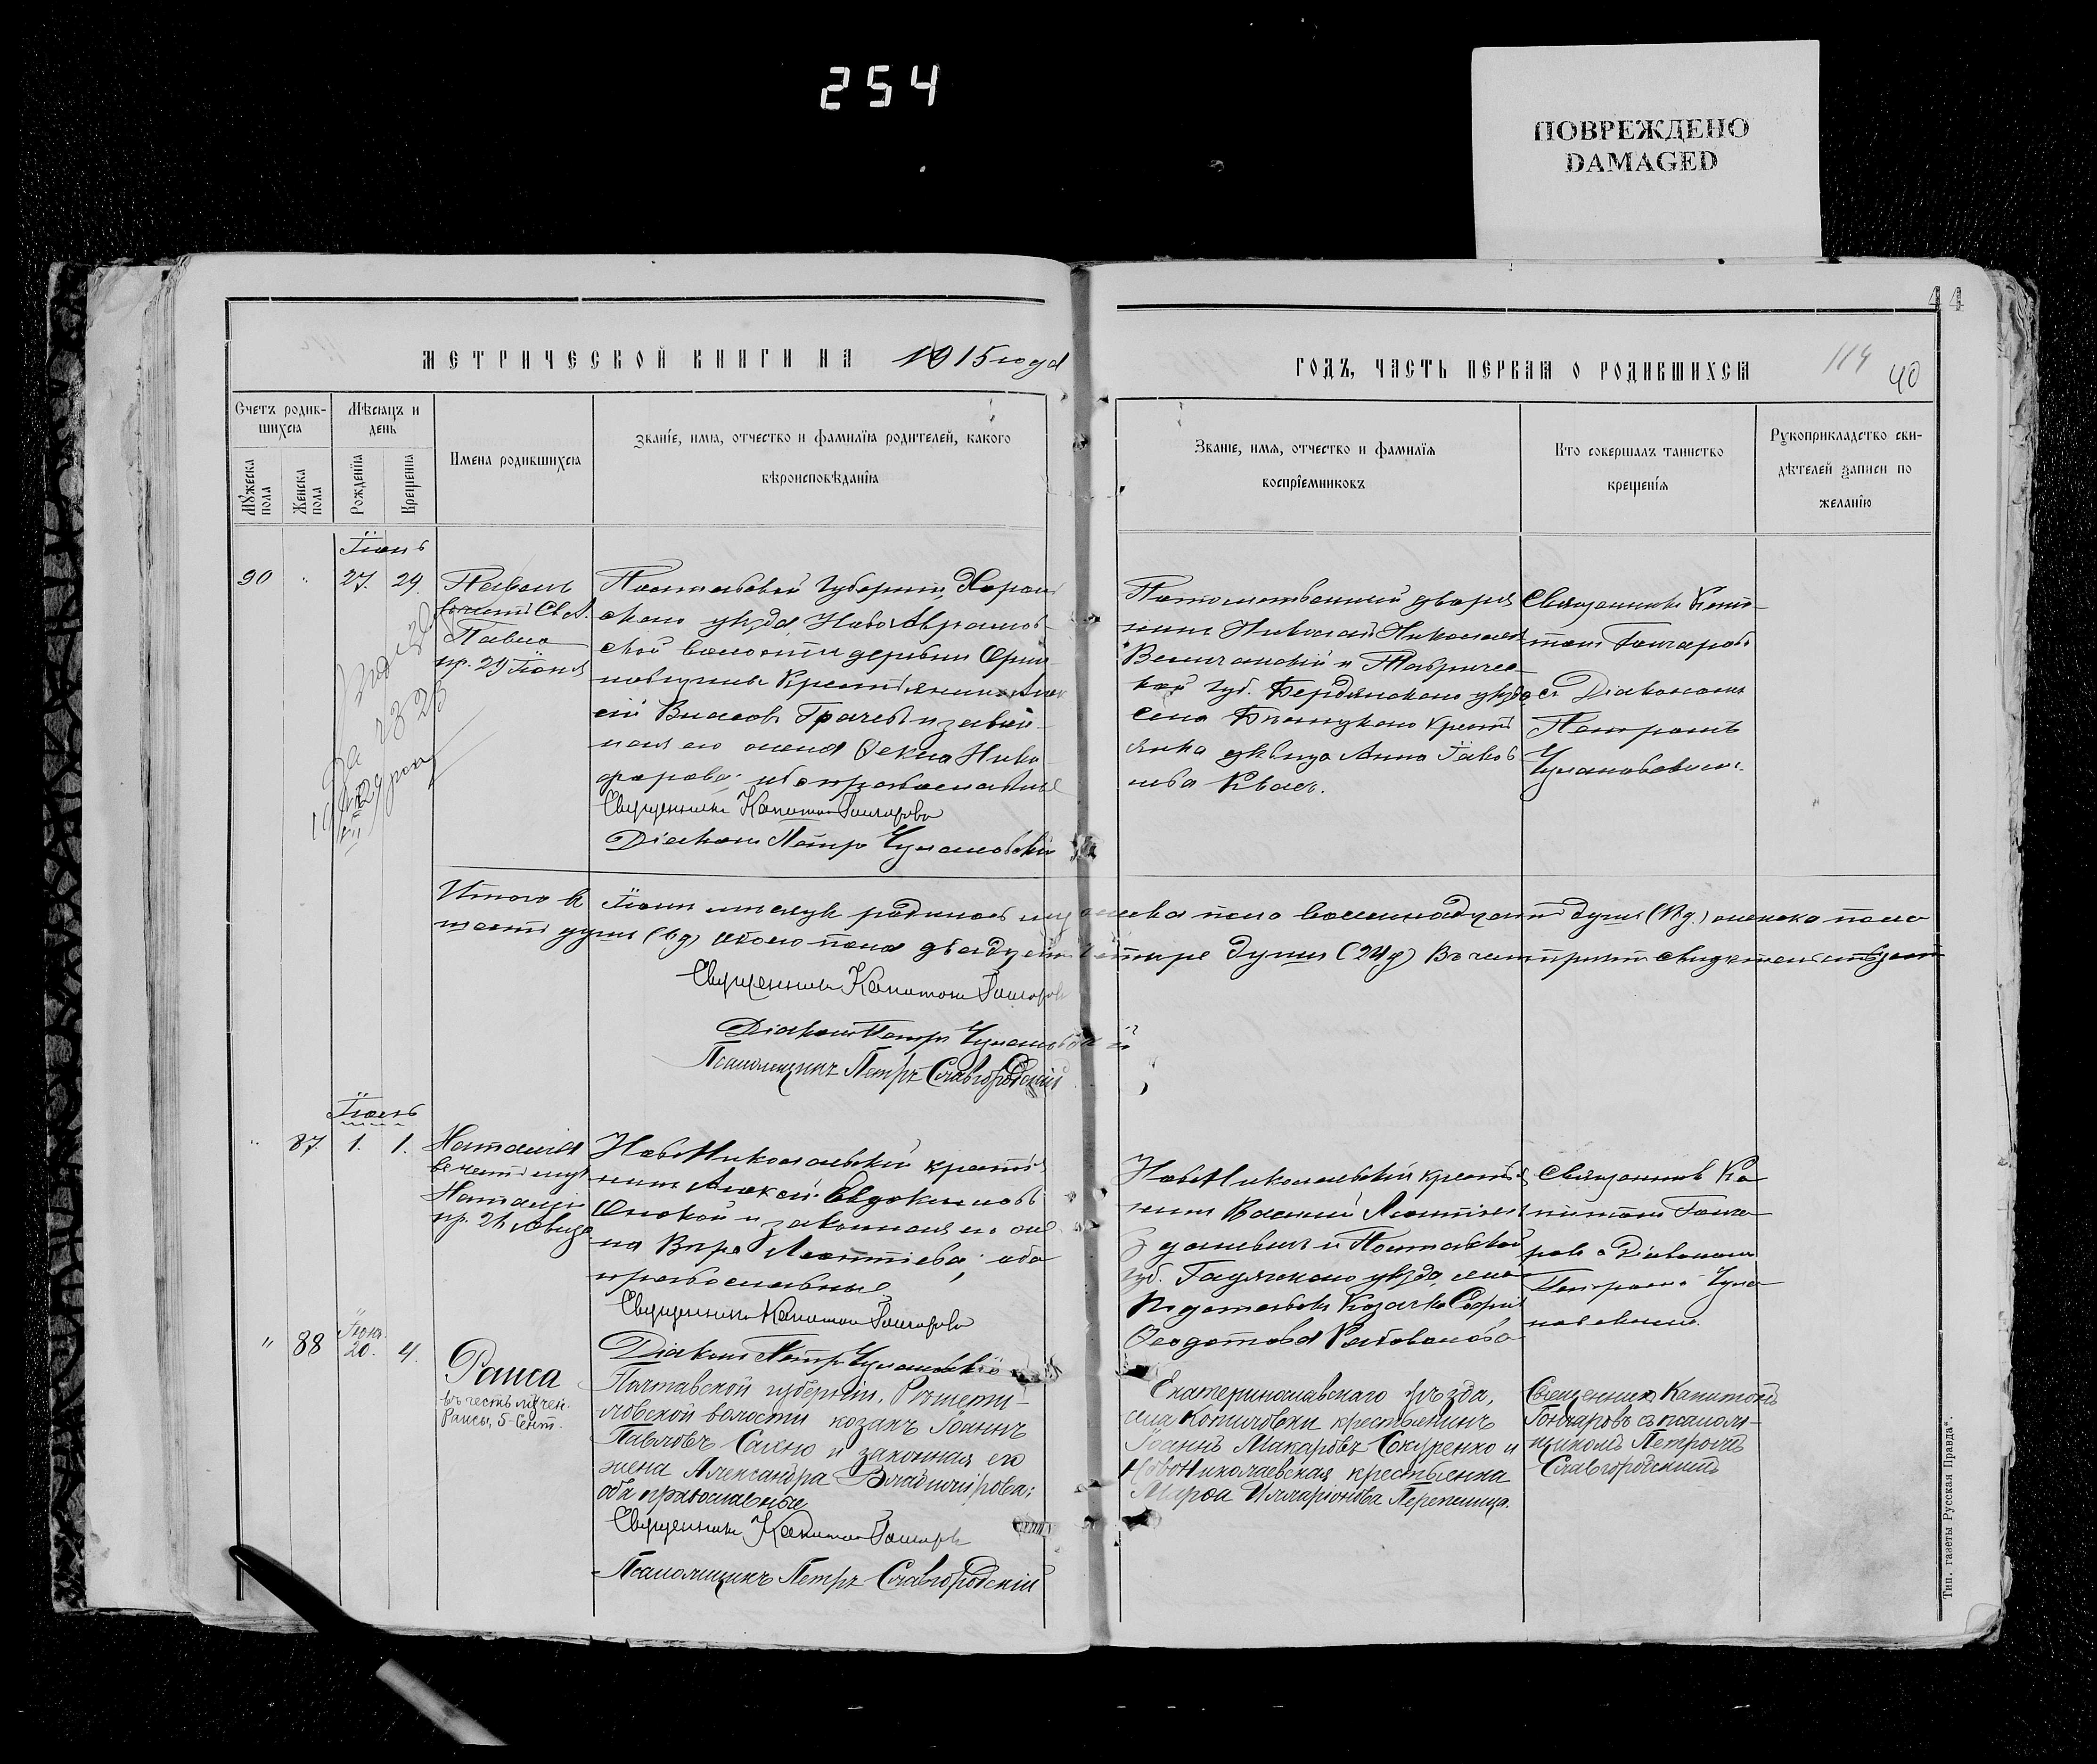 254
ПОВРЕЖДЕНО
DAMAGED
44
МЕТРИЧЕСКОЙ КНИГИ НА 1915 года
ГОДЪ, ЧАСТЬ ПЕРВАЯ О РОДИВШИХСЯ
114
40
Счетъ родив-
шихся
Мѣсяцъ и
день
Мужеска
пола
Женска
пола
Рожденїя
Крещенїя
Имена родившихся
Званїе, имя, отчество и фамилїя родителей, какого
вѣроисповѣданїя
Званїе, имя, отчество и фамилїя
воспрїемниковъ
Кто совершалъ таинство
крещенїя
Рукоприкладство сви-
дѣтелей записи по
желанїю
Іюнь
90 " 27. 29.
Павелъ
въ честь Св. А.
Павла
пр. 29 Іюня
Полтавской Губерніи, Хороль
скаго уѣзда, Ново Аврамов-
ской волости деревни
крестьянинъ Алек
сѣй Власовъ Грачевъ и закон-
ная его жена Ѳекла Ники-
форова; оба православные
Священникъ Капитонъ Гончаровъ
Діаконъ Петръ Чулановскій
Потомственный дворя
нинъ Николай Николаев
и Тавричес-
кой губ. Бердянскаго уѣзда
села крестъ
янка дѣвица Анна Іаков
лева Квасъ.
Священникъ Капи-
тонъ Гончаровъ
съ Діакономъ
Петромъ
Чулановскимъ.
Итого въ Іюнѣ мѣсяцѣ родилось мужеска пола восемнадцать душъ (18 д.) женска пола
шесть душъ (6 д) обоего пола двадцать четыре души (24 д) Въ чемъ причтъ свидѣтельствуетъ
Священникъ Капитонъ Гончаровъ
Діаконъ Петръ Чулановскій
Псаломщикъ Петръ Славгородскій
Іюль
" 87. 1. 1.
Наталія
въ честь муч
Наталіи
пр. 26 Август
НовоНиколаевскій крестья
нинъ Алексѣй Евдокимовъ
и законная его же
на Вѣра Леонтіева; оба
православные
Священникъ Капитонъ Гончаровъ
Діаконъ Петръ Чулановскій
НовоНиколаевскій крестья
нинъ Василій Леонтіевъ
и Полтавской
губ. Гадячскаго уѣзда, села
козачка Софія
Ѳеодотова
Священникъ Ка
питонъ Гонча
ровъ съ Діакономъ
Петромъ Чула
новскимъ.
Іюня
" 88 20. 4.
Раиса
въ честь мучен.
Раисы, 5 Сент.
Полтавской губерніи, Рѣшети-
ловской волости козакъ Іоаннъ
Павловъ Сахно и законная его
жена Александра Владимірова;
оба православные
Священникъ Капитонъ Гончаровъ
Псаломщикъ Петръ Славгородскій
Екатеринославскаго уѣзда,
села крестьянинъ
Іоаннъ Макаровъ Сокуренко и
НовоНиколаевская крестьянка
Марѳа Илларіонова Перепелица.
Священникъ Капитонъ
Гончаровъ съ псалом-
щикомъ Петромъ
Славгородскимъ
Тип. газеты Русская Правда".